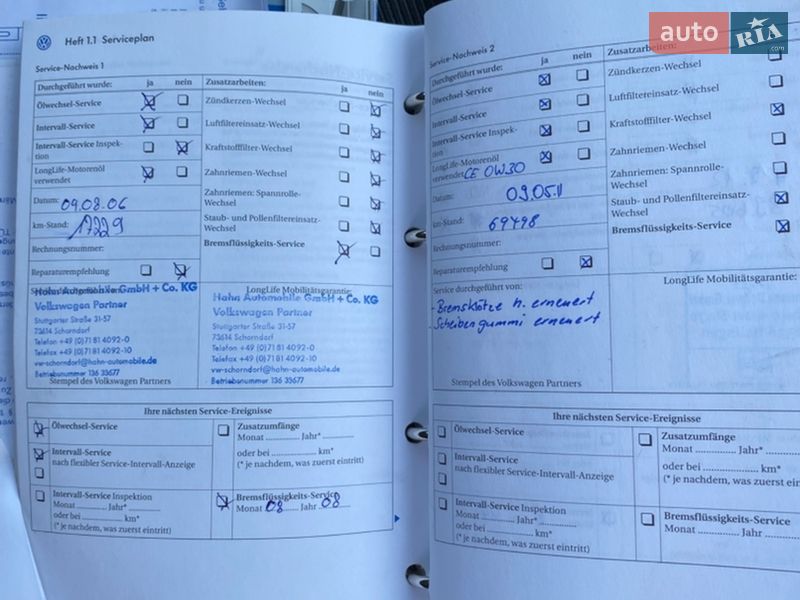 auto RIA .com
Heft 1.1 Serviceplan
Service-Nachweis 1
Durchgeführt wurde: ja nein
Ölwechsel-Service
Intervall-Service
Intervall-Service Inspek-
tion
LongLife-Motorenöl
verwendet
Datum: 09.08.06
km-Stand: 17229
Rechnungsnummer:
Reparaturempfehlung
Zusatzarbeiten: ja nein
Zündkerzen-Wechsel
Luftfiltereinsatz-Wechsel
Kraftstofffilter-Wechsel
Zahnriemen-Wechsel
Zahnriemen: Spannrolle-
Wechsel
Staub- und Pollenfiltereinsatz-
Wechsel
Bremsflüssigkeits-Service
Hahn Automobile GmbH + Co. KG
Volkswagen Partner
Stuttgarter Straße 31-57
73614 Schorndorf
Telefon +49 (0)71 81 4092-0
Telefax +49 (0)71 81 4092-10
vw-schorndorf@hahn-automobile.de
Betriebsnummer 136 33677
Stempel des Volkswagen Partners
LongLife Mobilitätsgarantie:
Hahn Automobile GmbH + Co. KG
Volkswagen Partner
Stuttgarter Straße 31-57
73614 Schorndorf
Telefon +49 (0)71 81 4092-0
Telefax +49 (0)71 81 4092-10
vw-schorndorf@hahn-automobile.de
Betriebsnummer 136 33677
Ihre nächsten Service-Ereignisse
Ölwechsel-Service
Intervall-Service
nach flexibler Service-Intervall-Anzeige
Intervall-Service Inspektion
Monat Jahr*
oder bei km*
(* je nachdem, was zuerst eintritt)
Zusatzumfänge
Monat Jahr*
oder bei km*
(* je nachdem, was zuerst eintritt)
Bremsflüssigkeits-Service
Monat 08 Jahr 08
Service-Nachweis 2
Durchgeführt wurde: ja nein
Ölwechsel-Service
Intervall-Service
Intervall-Service Inspek-
tion
LongLife-Motorenöl
verwendet CE 0W30
Datum: 09.05.11
km-Stand: 69498
Rechnungsnummer:
Reparaturempfehlung
Zusatzarbeiten:
Zündkerzen-Wechsel
Luftfiltereinsatz-Wechsel
Kraftstofffilter-Wechsel
Zahnriemen-Wechsel
Zahnriemen: Spannrolle-
Wechsel
Staub- und Pollenfiltereinsatz-
Wechsel
Bremsflüssigkeits-Service
Service durchgeführt von:
- Bremsklötze h. erneuert
- Scheibengummi erneuert
Stempel des Volkswagen Partners
LongLife Mobilitätsgarantie:
Ihre nächsten Service-Ereignisse
Ölwechsel-Service
Intervall-Service
nach flexibler Service-Intervall-Anzeige
Intervall-Service Inspektion
Monat Jahr*
oder bei km*
(* je nachdem, was zuerst eintritt)
Zusatzumfänge
Monat Jahr*
oder bei km*
(* je nachdem, was zuerst eintritt)
Bremsflüssigkeits-Service
Monat Jahr